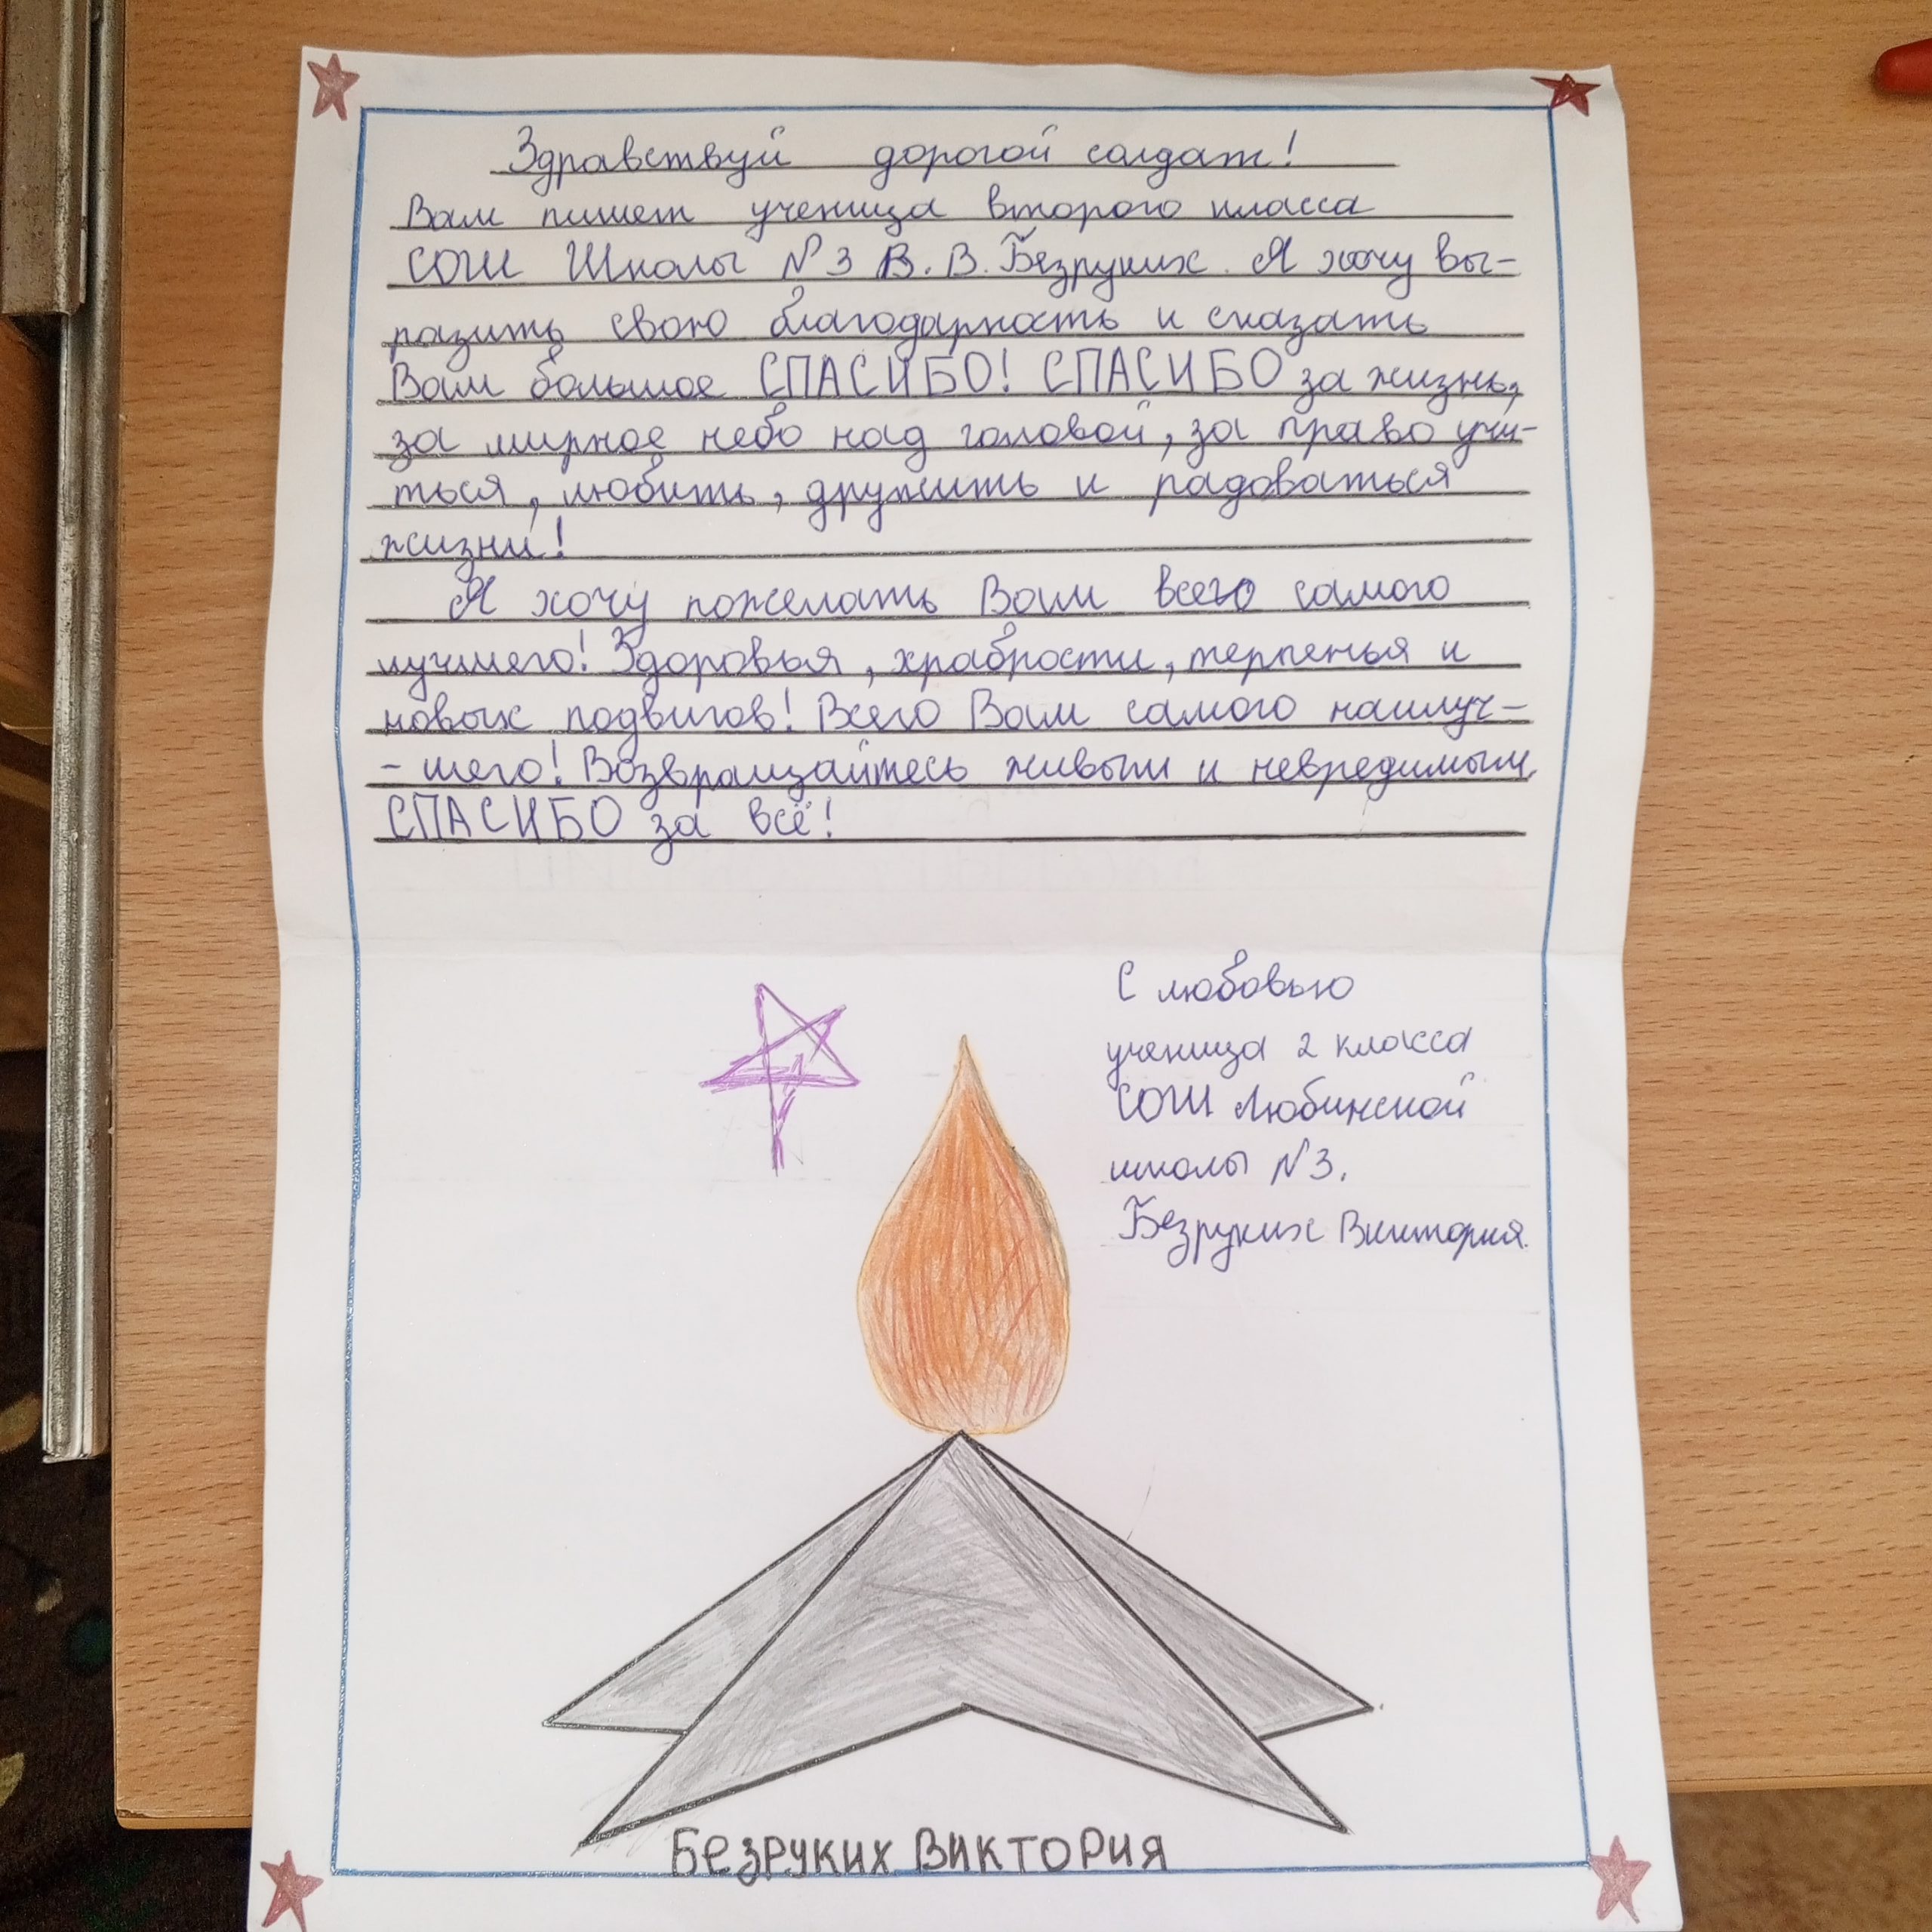 Здравствуй дорогой солдат!
Вам пишет ученица второго класса
СОШ Школы №3 В.В. Безруких. Я хочу вы-
разить свою благодарность и сказать
Вам большое СПАСИБО! СПАСИБО за жизнь,
за мирное небо над головой, за право учи-
ться, любить, дружить и радоваться
жизни!
Я хочу пожелать Вам всего самого
лучшего! Здоровья, храбрости, терпенья и
новых подвигов! Всего Вам самого наилуч-
- шего! Возвращайтесь живым и невредимым.
СПАСИБО за всё!
С любовью
ученица 2 класса
СОШ Любинской
школы №3.
Безруких Виктория.
БЕЗРУКИХ ВИКТОРИЯ